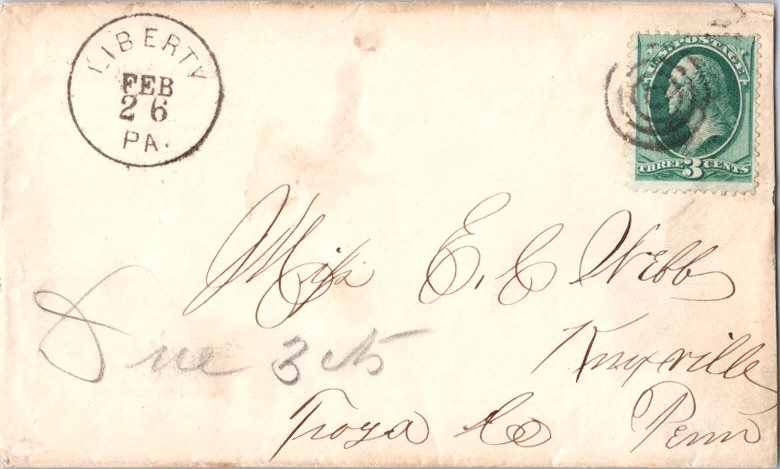 LIBERTY
FEB
26
PA.
U.S. POSTAGE
THREE 3 CENTS
Miss E. C. Webb
Knoxville
Tioga Co Penn
Due 3 cts